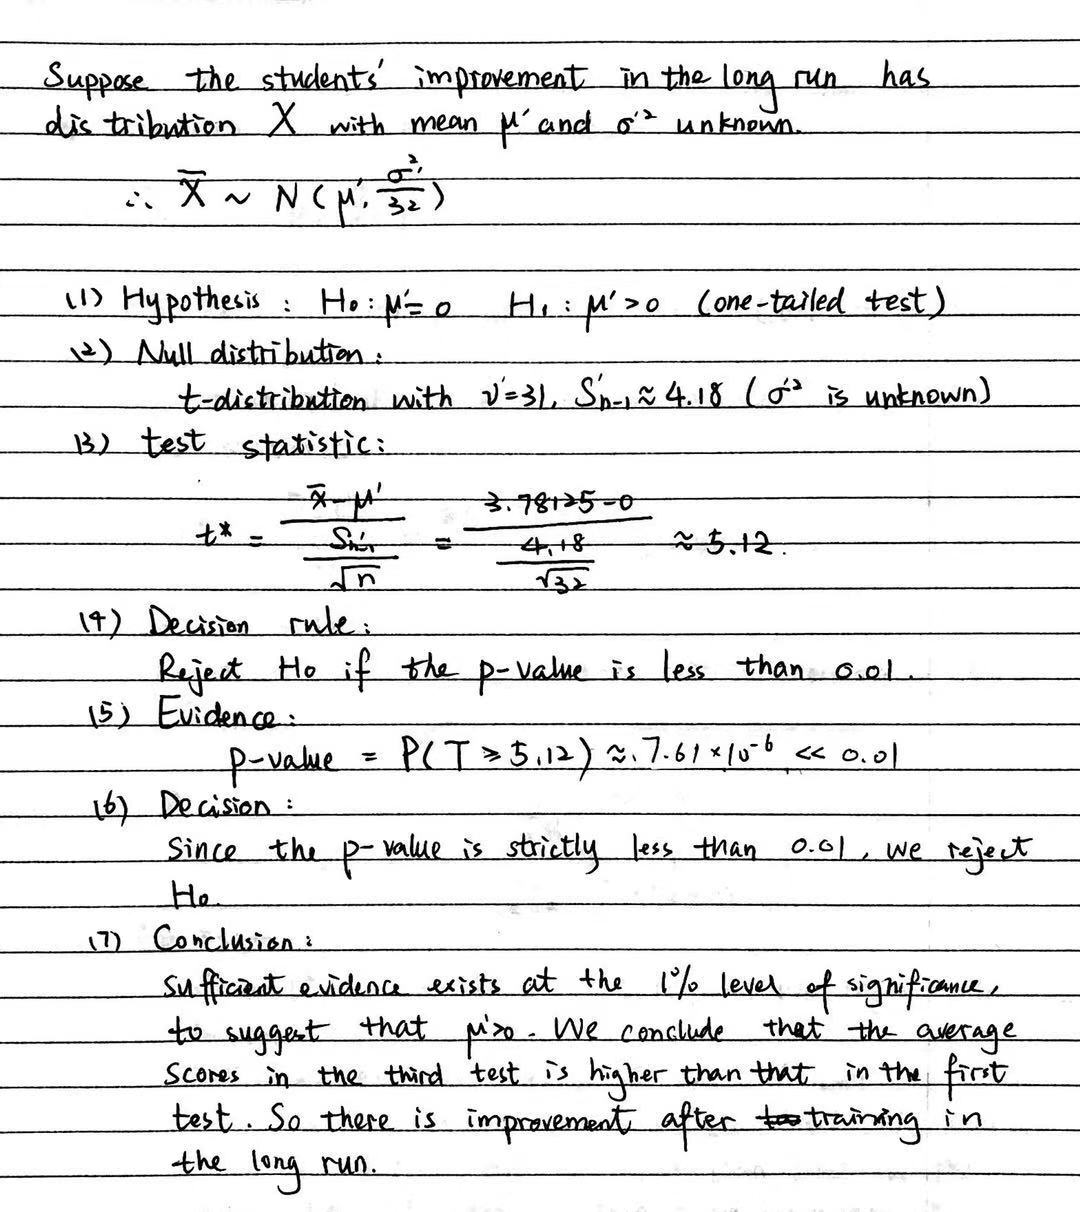 Suppose the students' improvement in the long run has
distribution X with mean μ' and σ'² unknown.
∴ X̄ ~ N(μ', σ'²/32)
(1) Hypothesis : H₀: μ'=0 H₁: μ'>0 (one-tailed test)
(2) Null distribution:
t-distribution with ν'=31, S'n-1≈4.18 (σ'² is unknown)
(3) test statistic:
t* = (x̄-μ')/(S'n-1/√n) = (3.78125-0)/(4.18/√32) ≈ 5.12.
(4) Decision rule:
Reject H₀ if the p-value is less than 0.01.
(5) Evidence:
p-value = P(T≥5.12) ≈ 7.61×10⁻⁶ << 0.01
(6) Decision:
Since the p-value is strictly less than 0.01, we reject
H₀.
(7) Conclusion:
Sufficient evidence exists at the 1% level of significance,
to suggest that μ'>0. We conclude that the average
scores in the third test is higher than that in the first
test. So there is improvement after training in
the long run.